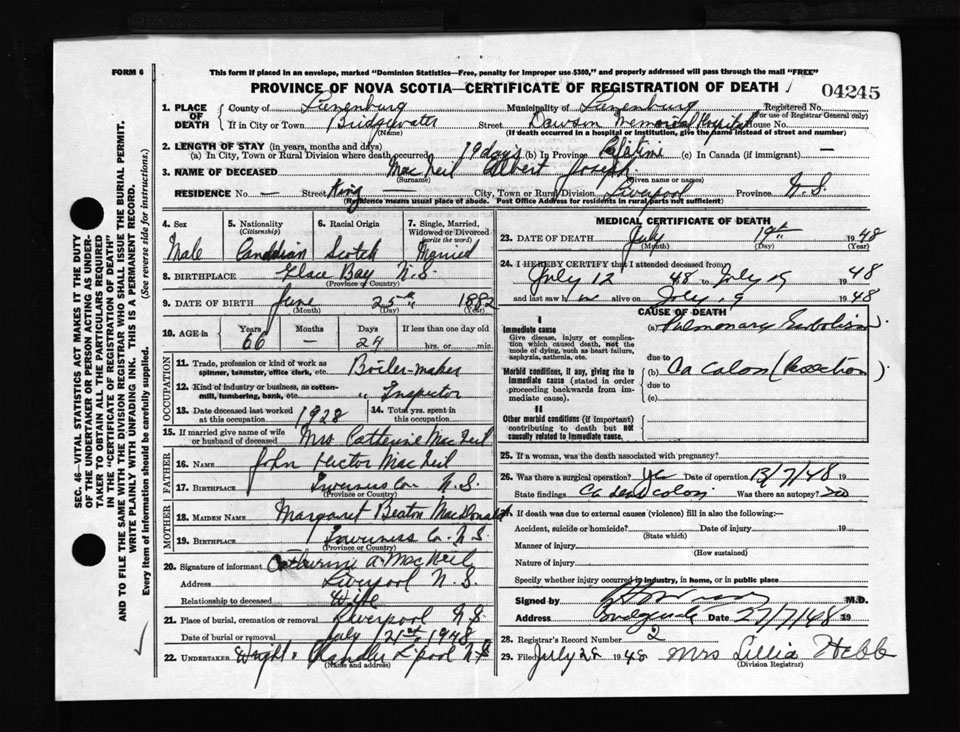 FORM 6
This form if placed in an envelope, marked "Dominion Statistics—Free, penalty for improper use $300," and properly addressed will pass through the mail "FREE"
PROVINCE OF NOVA SCOTIA—CERTIFICATE OF REGISTRATION OF DEATH
04245
1. PLACE OF DEATH
County of Lunenburg Municipality of Lunenburg Registered No.
(For use of Registrar General only)
If in City or Town Bridgewater Street Dawson Memorial Hospital House No.
(Name) (If death occurred in a hospital or institution, give the name instead of street and number)
2. LENGTH OF STAY (in years, months and days)
(a) In City, Town or Rural Division where death occurred 19 days (b) In Province Lifetime (c) In Canada (if immigrant) —
3. NAME OF DECEASED MacNeil Albert Joseph
(Surname) (Given name or names)
RESIDENCE No. — Street King City, Town or Rural Division Liverpool Province N.S.
(Residence means usual place of abode. Post Office Address for residents in rural parts not sufficient)
4. Sex Male
5. Nationality (Citizenship) Canadian
6. Racial Origin Scotch
7. Single, Married, Widowed or Divorced (write the word) Married
8. BIRTHPLACE Glace Bay N.S.
(Province or Country)
9. DATE OF BIRTH June 25th 1882
(Month) (Day) (Year)
10. AGE in Years 66 Months — Days 24 If less than one day hrs. or min.
OCCUPATION
11. Trade, profession or kind of work as spinner, teamster, office clerk, etc. Boiler-maker
12. Kind of industry or business, as cotton-mill, lumbering, bank, etc. " Inspector
13. Date deceased last worked at this occupation 1928
14. Total yrs. spent in this occupation
15. If married give name of wife or husband of deceased Mrs Catherine MacNeil
FATHER
16. NAME John Hector MacNeil
17. BIRTHPLACE Inverness Co. N.S.
(Province or Country)
MOTHER
18. MAIDEN NAME Margaret Beaton MacDonald
19. BIRTHPLACE Inverness Co. N.S.
(Province or Country)
20. Signature of informant Catherine A MacNeil
Address Liverpool N.S.
Relationship to deceased Wife
21. Place of burial, cremation or removal Liverpool N.S.
Date of burial or removal July 21st 1948
22. UNDERTAKER Wright & Chandler L'pool N.S
(Name and address)
MEDICAL CERTIFICATE OF DEATH
23. DATE OF DEATH July 19th 1948
(Month) (Day) (Year)
24. I HEREBY CERTIFY that I attended deceased from
July 12 48 to July 19 1948
and last saw h im alive on July 19 1948
CAUSE OF DEATH
I
Immediate cause
Give disease, injury or complication which caused death, not the mode of dying, such as heart failure, asphyxia, asthenia, etc.
(a) Pulmonary Embolism
due to
Morbid conditions, if any, giving rise to immediate cause (stated in order proceeding backwards from immediate cause).
(b) Ca Colon (Resection)
due to
(c)
II
Other morbid conditions (if important) contributing to death but NOT causally related to immediate cause.
25. If a woman, was the death associated with pregnancy?
26. Was there a surgical operation? yes Date of operation 13/7/48 19
State findings Ca colon Was there an autopsy? no
27. If death was due to external causes (violence) fill in also the following:—
Accident, suicide or homicide? Date of injury 19
(State which)
Manner of injury
(How sustained)
Nature of injury
Specify whether injury occurred in industry, in home, or in public place
Signed by M.D.
Bridgewater Date 27/7/48 19
28. Registrar's Record Number 2
29. Filed July 28 1948 Mrs Lillia Hebb
(Division Registrar)
SEC. 46—VITAL STATISTICS ACT MAKES IT THE DUTY
OF THE UNDERTAKER OR PERSON ACTING AS UNDER-
TAKER TO OBTAIN ALL THE PARTICULARS REQUIRED
IN THE "CERTIFICATE OF REGISTRATION OF DEATH"
AND TO FILE THE SAME WITH THE DIVISION REGISTRAR WHO SHALL ISSUE THE BURIAL PERMIT.
WRITE PLAINLY WITH UNFADING INK. THIS IS A PERMANENT RECORD.
Every item of information should be carefully supplied. (See reverse side for instructions.)